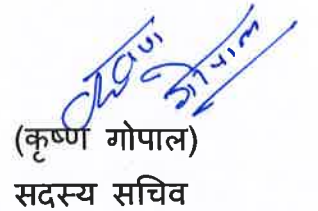 कृष्ण गोपाल
(कृष्ण गोपाल)
सदस्य सचिव